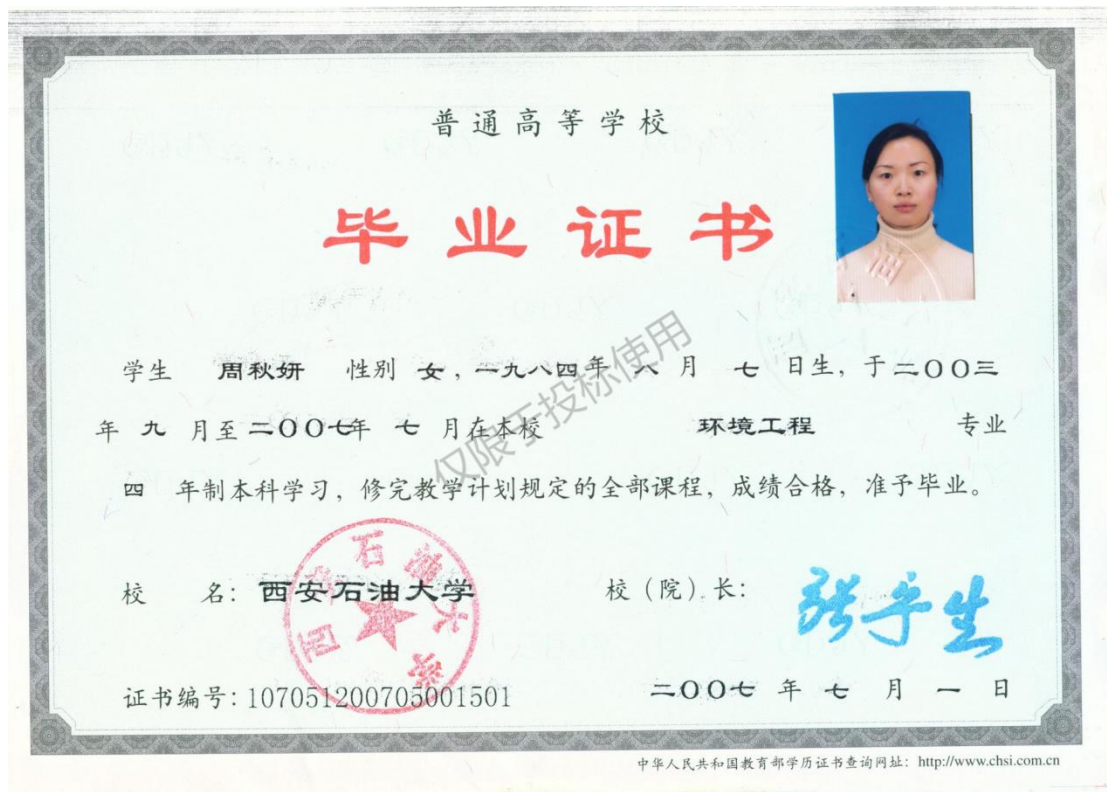 普通高等学校
毕业证书
学生 周秋妍 性别 女，一九八四年 八 月 七 日生，于二〇〇三
年 九 月至二〇〇七年 七 月在本校 环境工程 专业
四 年制本科学习，修完教学计划规定的全部课程，成绩合格，准予毕业。
仅限于投标使用
校 名：西安石油大学 校（院）长：
西安石油大学
证书编号：107051200705001501 二〇〇七 年 七 月 一 日
中华人民共和国教育部学历证书查询网址：http://www.chsi.com.cn